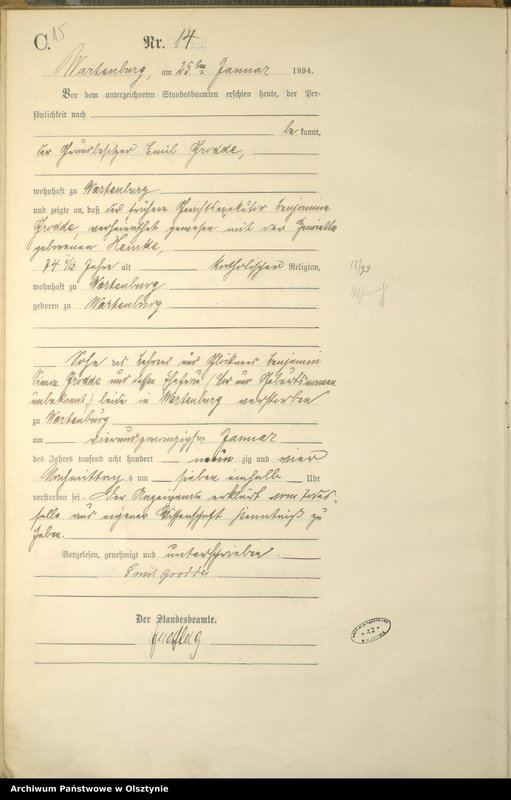 C. 15
Nr. 14
Wartenburg, am 25ten Januar 1894.
Vor dem unterzeichneten Standesbeamten erschien heute, der Per-
sönlichkeit nach
be kannt,
der Grundbesitzer Emil Grodde,
wohnhaft zu Wartenburg
und zeigte an, daß der frühere Gerichtsexekutor Benjamin
Grodde, verheirathet gewesen mit der Henriette
geborenen Heinke,
74 Jahre alt katholischer Religion,
wohnhaft zu Wartenburg
geboren zu Wartenburg
Sohn des Lehrers und Glöckners Benjamin
Simon Grodde und dessen Ehefrau (Vor und Geburtsnamen
unbekannt) beide in Wartenburg verstorben
zu Wartenburg
am vierundzwanzigsten Januar
des Jahres tausend acht hundert neun zig und vier
Nachmittag s um sieben einhalb Uhr
verstorben sei. Der Anzeigende erklärt vom Todes-
falle aus eigener Wissenschaft Kenntniß zu
haben.
Vorgelesen, genehmigt und unterschrieben.
Emil Grodde
Der Standesbeamte.
42
Archiwum Państwowe w Olsztynie